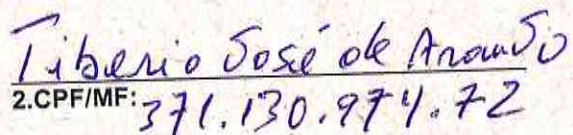 Tiberio José de Araujo
2.CPF/MF: 371.130.974.72